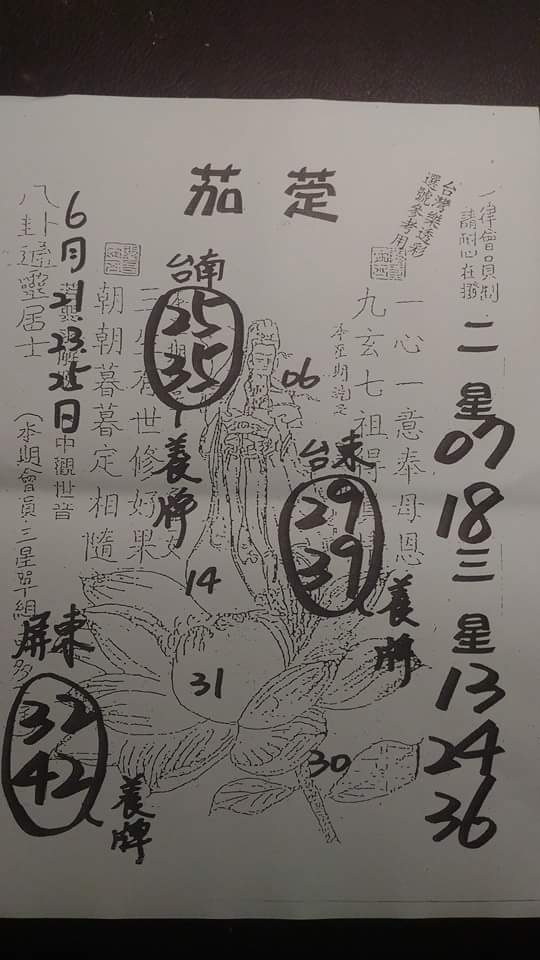 茄萣
台灣樂透彩
選號參考用
一律會員制
請耐心在撥
二星
07
18
三星
13
24
36
一心一意奉母恩
九玄七祖得
06
台東
29
39
養牌
台南
25
35
養牌
三 世修好果
朝朝暮暮定相隨
14
31
30
6月21.23.25日
中觀世音
八卦通靈居士
(本期會員三星單組
屏東
32
42
養牌